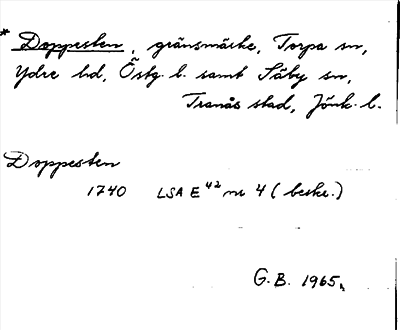 * Doppesten, gränsmärke, Torpa sn,
Ydre hd, Östg. l. samt Säby sn,
Tranås stad, Jönk. l.
Doppesten
1740 LSA E 42 nr 4 (beskr.)
G.B. 1965.